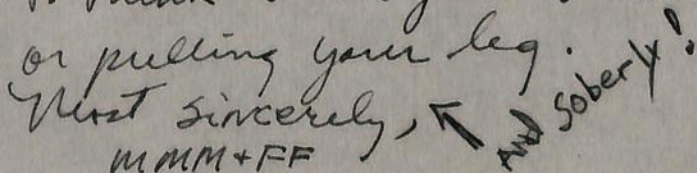 or pulling your leg.
Most sincerely,
And Soberly!
MMM+FF